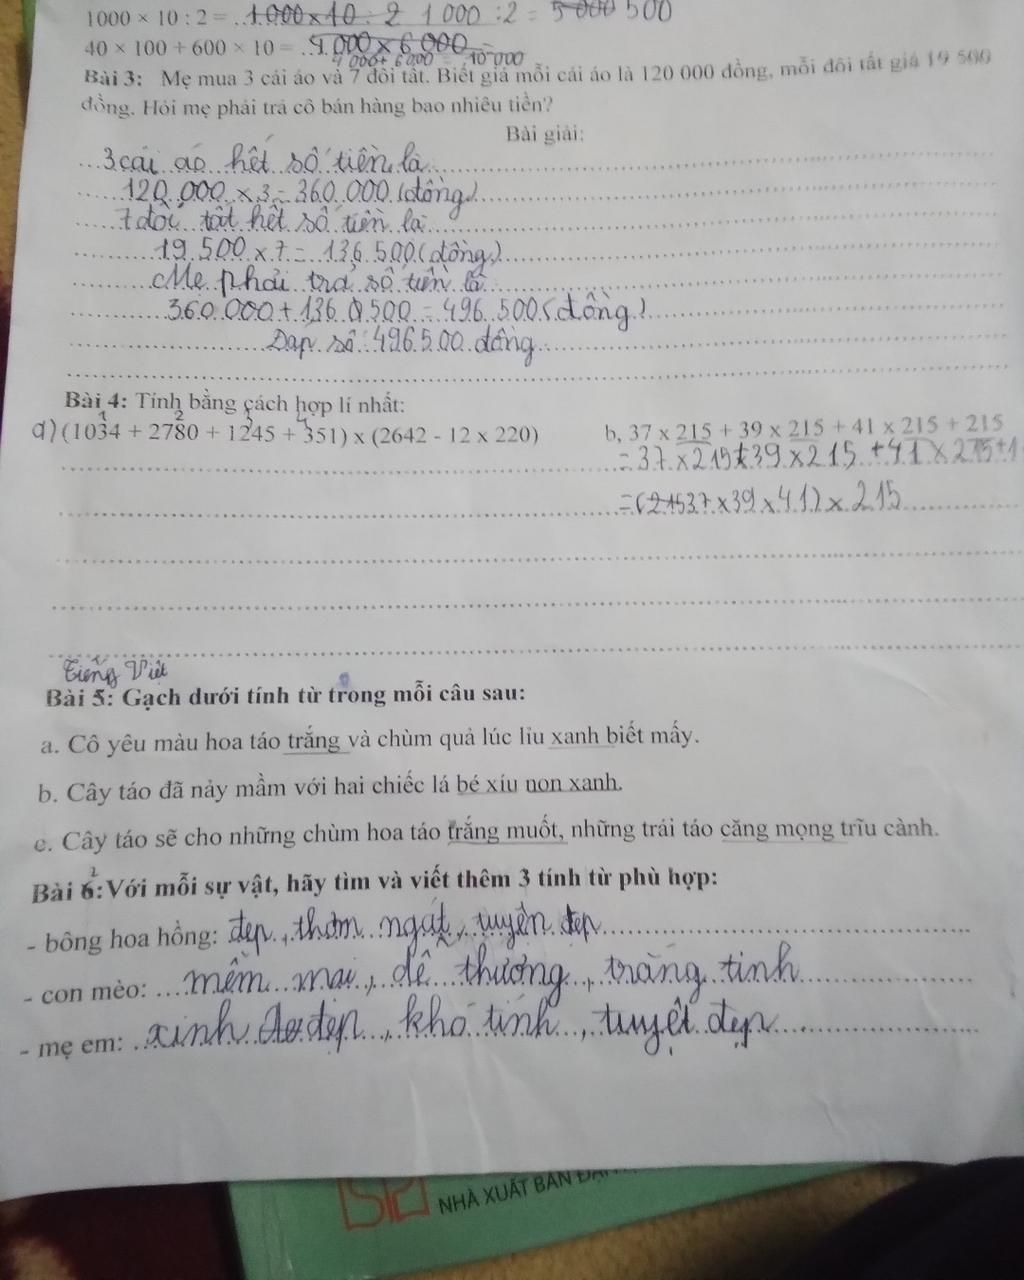 1000 × 10 : 2 = 1.000 × 10 : 2 1 000 : 2 = 5 000 500
40 × 100 + 600 × 10 = 4.000 × 6 000
4 000 + 6 000 = 10 000
Bài 3: Mẹ mua 3 cái áo và 7 đôi tất. Biết giá mỗi cái áo là 120 000 đồng, mỗi đôi tất giá 19 500
đồng. Hỏi mẹ phải trả cô bán hàng bao nhiêu tiền?
Bài giải:
3 cái áo hết số tiền là
120.000 × 3 = 360.000 (đồng)
7 đôi tất hết số tiền là
19.500 × 7 = 136.500 (đồng)
Mẹ phải trả số tiền là
360.000 + 136.500 = 496.500 (đồng)
Đáp số: 496.500 đồng
Bài 4: Tính bằng cách hợp lí nhất:
1 2 3 4
a) (1034 + 2780 + 1245 + 351) x (2642 - 12 x 220) b, 37 x 215 + 39 x 215 + 41 x 215 + 215
= 37 × 215 + 39 × 215 + 41 × 215 + 1
= (37 × 39 × 41) × 215
Tiếng Việt
Bài 5: Gạch dưới tính từ trong mỗi câu sau:
a. Cô yêu màu hoa táo trắng và chùm quả lúc lỉu xanh biết mấy.
b. Cây táo đã nảy mầm với hai chiếc lá bé xíu non xanh.
c. Cây táo sẽ cho những chùm hoa táo trắng muốt, những trái táo căng mọng trĩu cành.
Bài 6: Với mỗi sự vật, hãy tìm và viết thêm 3 tính từ phù hợp:
- bông hoa hồng: đẹp, thơm ngát, tuyện đẹp
- con mèo: mềm mại, dễ thương, trắng tinh
- mẹ em: xinh đẹp, khó tính, tuyệt đẹp
NHÀ XUẤT BẢN